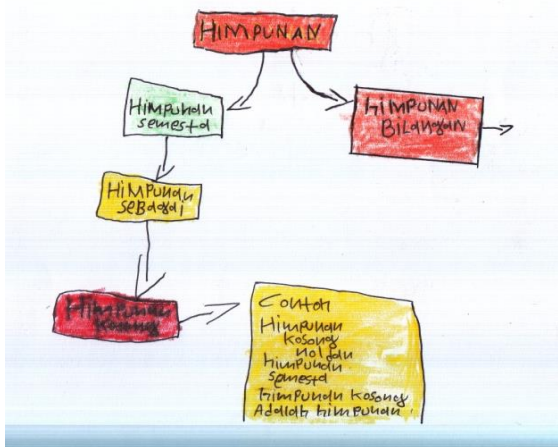 HIMPUNAN
Himpunan
semesta
HIMPUNAN
BILANGAN
HIMPUNAN
SEBAGAI
Himpunan
Kosong
Contoh
Himpunan
kosong
nol dan
himpunan
semesta
himpunan kosong
Adalah himpunan